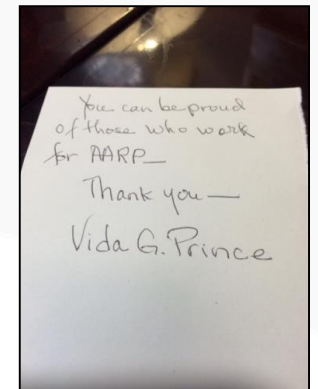 You can be proud
of those who work
for AARP—
Thank you—
Vida G. Prince